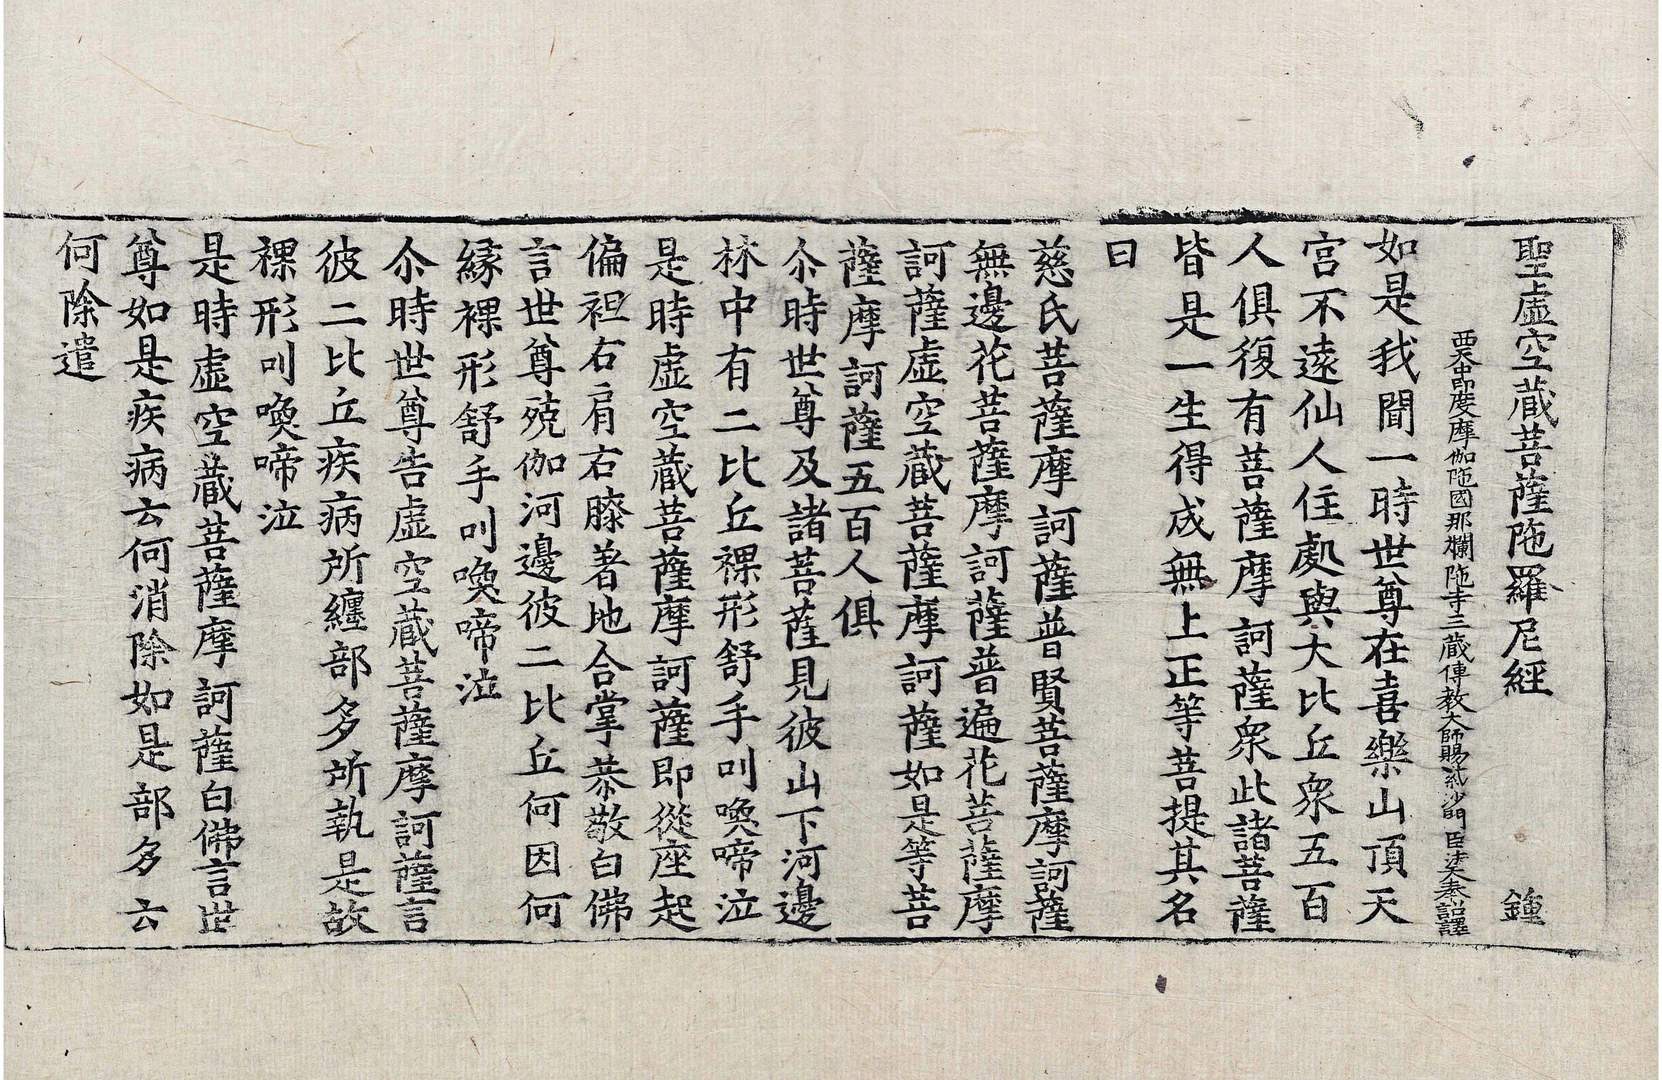 聖虛空藏菩薩陁羅尼經 鍾
西天中印度摩伽陁國那爛陁寺三藏傳教大師賜紫沙門臣法天奉詔譯
如是我聞一時世尊在喜樂山頂天
宮不遠仙人住處與大比丘衆五百
人俱復有菩薩摩訶薩衆此諸菩薩
皆是一生得成無上正等菩提其名
曰
慈氏菩薩摩訶薩普賢菩薩摩訶薩
無邊花菩薩摩訶薩普遍花菩薩摩
訶薩虛空藏菩薩摩訶薩如是等菩
薩摩訶薩五百人俱
尒時世尊及諸菩薩見彼山下河邊
林中有二比丘裸形舒手叫喚啼泣
是時虛空藏菩薩摩訶薩即從座起
偏袒右肩右膝著地合掌恭敬白佛
言世尊殑伽河邊彼二比丘何因何
緣裸形舒手叫喚啼泣
尒時世尊告虛空藏菩薩摩訶薩言
彼二比丘疾病所纏部多所執是故
裸形叫喚啼泣
是時虛空藏菩薩摩訶薩白佛言世
尊如是疾病云何消除如是部多云
何除遣